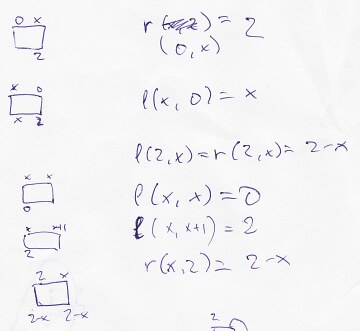 0 x
r(
) = 2
(0,x)
2
x 0
l(x, 0) = x
x 2
l(2,x) = r(2,x) = 2-x
x x
l(x,x) = 0
0
x x+1
l(x,x+1) = 2
2
r(x,2) = 2-x
2 x
2-x 2-x
2